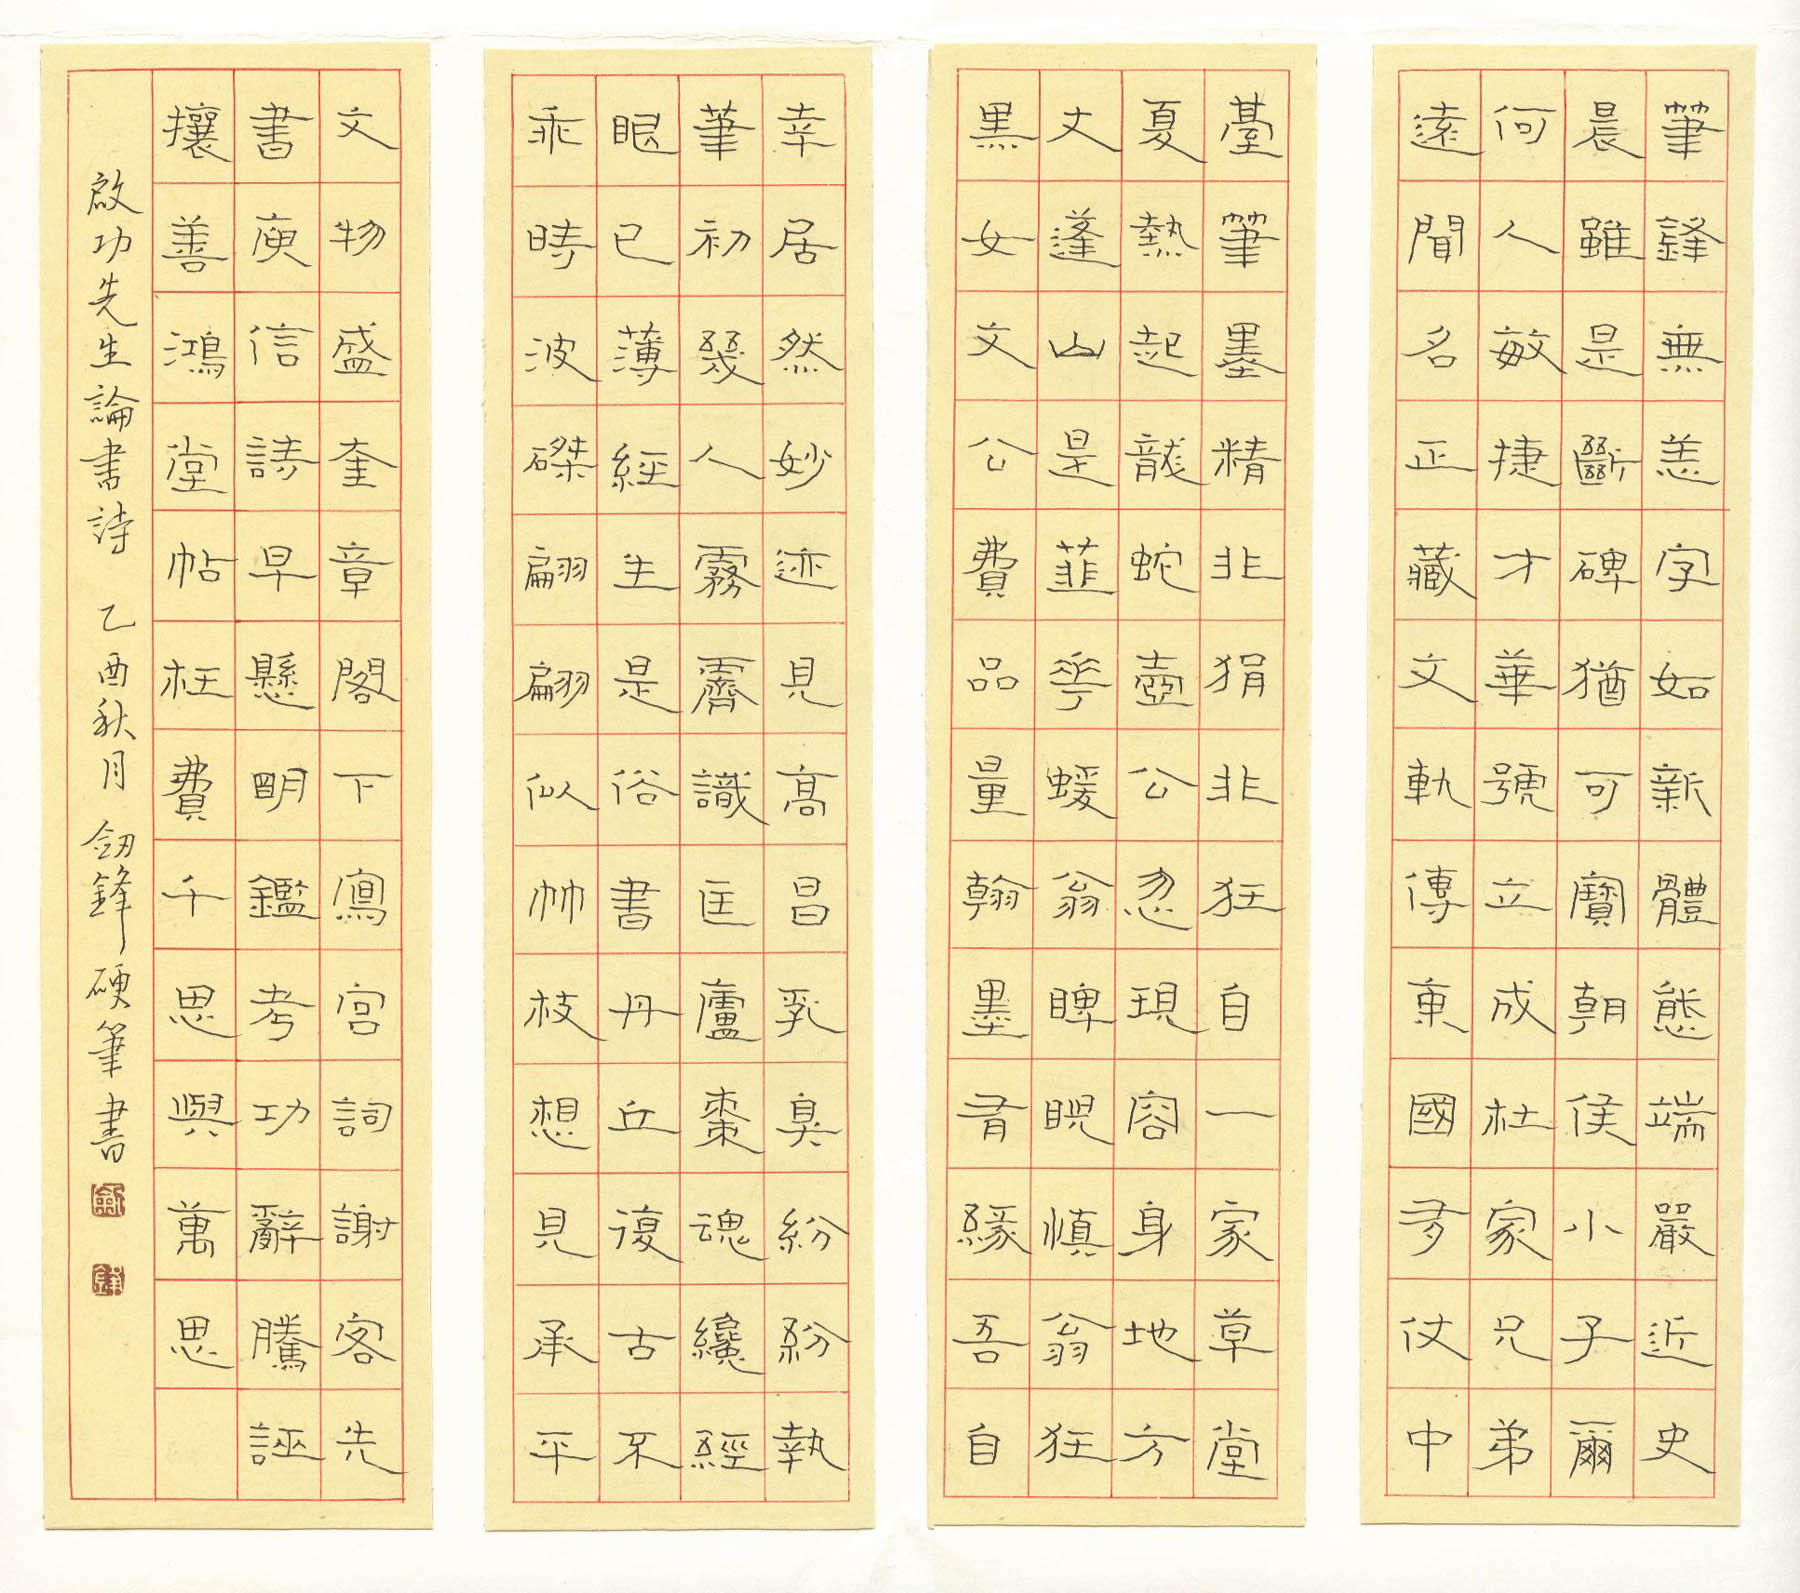 筆鋒無恙字如新體態端嚴近史
晨雖是斷碑猶可寶朝侯小子爾
何人敏捷才華號立成杜家兄弟
遠聞名正藏文軌傳東國多仗中
臺筆墨精非狷非狂自一家草堂
夏熱起龍蛇壺公忽現容身地方
丈蓬山是韮花蝯翁睥睨慎翁狂
黑女文公費品量翰墨有緣吾自
幸居然妙迹見高昌乳臭紛紛執
筆初幾人霧霽識匡廬棗魂纔經
眼已薄經生是俗書丹丘復古不
乖時波磔翩翩似竹枝想見承平
文物盛奎章閣下寫宮詞謝客先
書庾信詩早懸明鑑考功辭騰誣
攘善鴻堂帖枉費千思與萬思
啟功先生論書詩 乙酉秋月 釰鋒硬筆書
劍
鋒